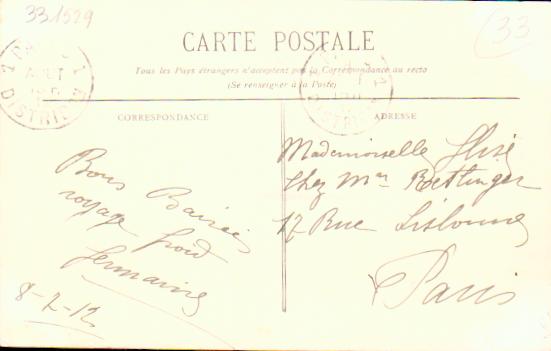 33 1529
33
CARTE POSTALE
Tous les Pays étrangers n'acceptent pas la Correspondance au recto
(Se renseigner à la Poste)
CORRESPONDANCE
ADRESSE
AOUT
DISTRIB
DISTRIB
Bons Baisers
voyage froid
Germaine
8-2-12
Mademoiselle Élise
Chez Mr Boettinger
12 Rue Lisbonne
Paris